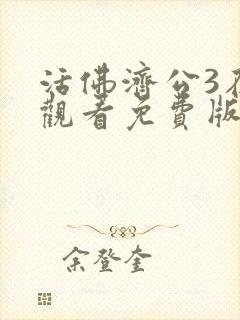 活佛濟公3在
觀看免費版
余登奎